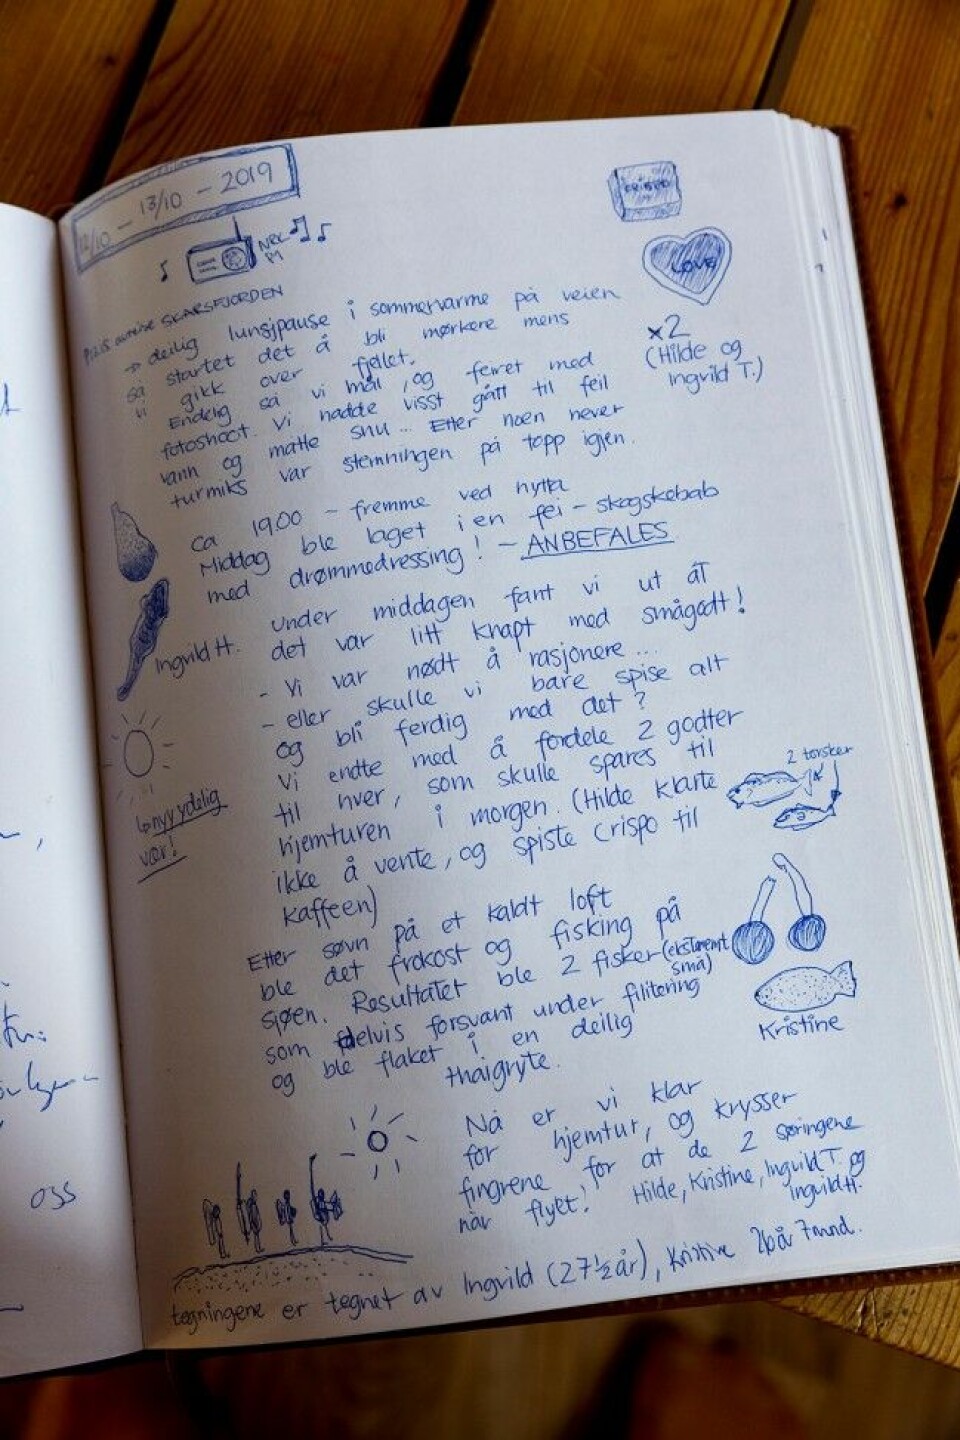 12/10 - 13/10 - 2019
NRK
SKARSFJORDEN
LOVE
→ deilig lunsjpause i sommervarme på veien
så startet det å bli mørkere mens
vi gikk over fjellet.
x2
(Hilde og
Ingvild T.)
Endelig så vi mål, og feiret med
fotoshoot. Vi hadde visst gått til feil
vann og måtte snu... Etter noen never
turmiks var stemningen på topp igjen.
ca 19.00 - fremme ved hytta
Middag ble laget i en fei - skogskebab
med drømmedressing! - ANBEFALES
Ingvild H.
under middagen fant vi ut at
det var litt knapt med smågodt!
- Vi var nødt å rasjonere...
- eller skulle vi bare spise alt
og bli ferdig med det?
Vi endte med å fordele 2 godter
til hver, som skulle spares til
hjemturen i morgen. (Hilde klarte
ikke å vente, og spiste Crispo til
kaffeen)
nyydelig
vær!
2 torsker
Etter søvn på et kaldt loft
ble det frokost og fisking på
sjøen. Resultatet ble 2 fisker (ekstremt
små)
som delvis forsvant under filitering
og ble flaket i en deilig
thaigryte.
Kristine
Nå er vi klar
for hjemtur, og krysser
fingrene for at de 2 søringene
når flyet! Hilde, Kristine, Ingvild T. og
Ingvild H.
tegningene er tegnet av Ingvild (27 ½ år), Kristine 26 år 7 mnd.